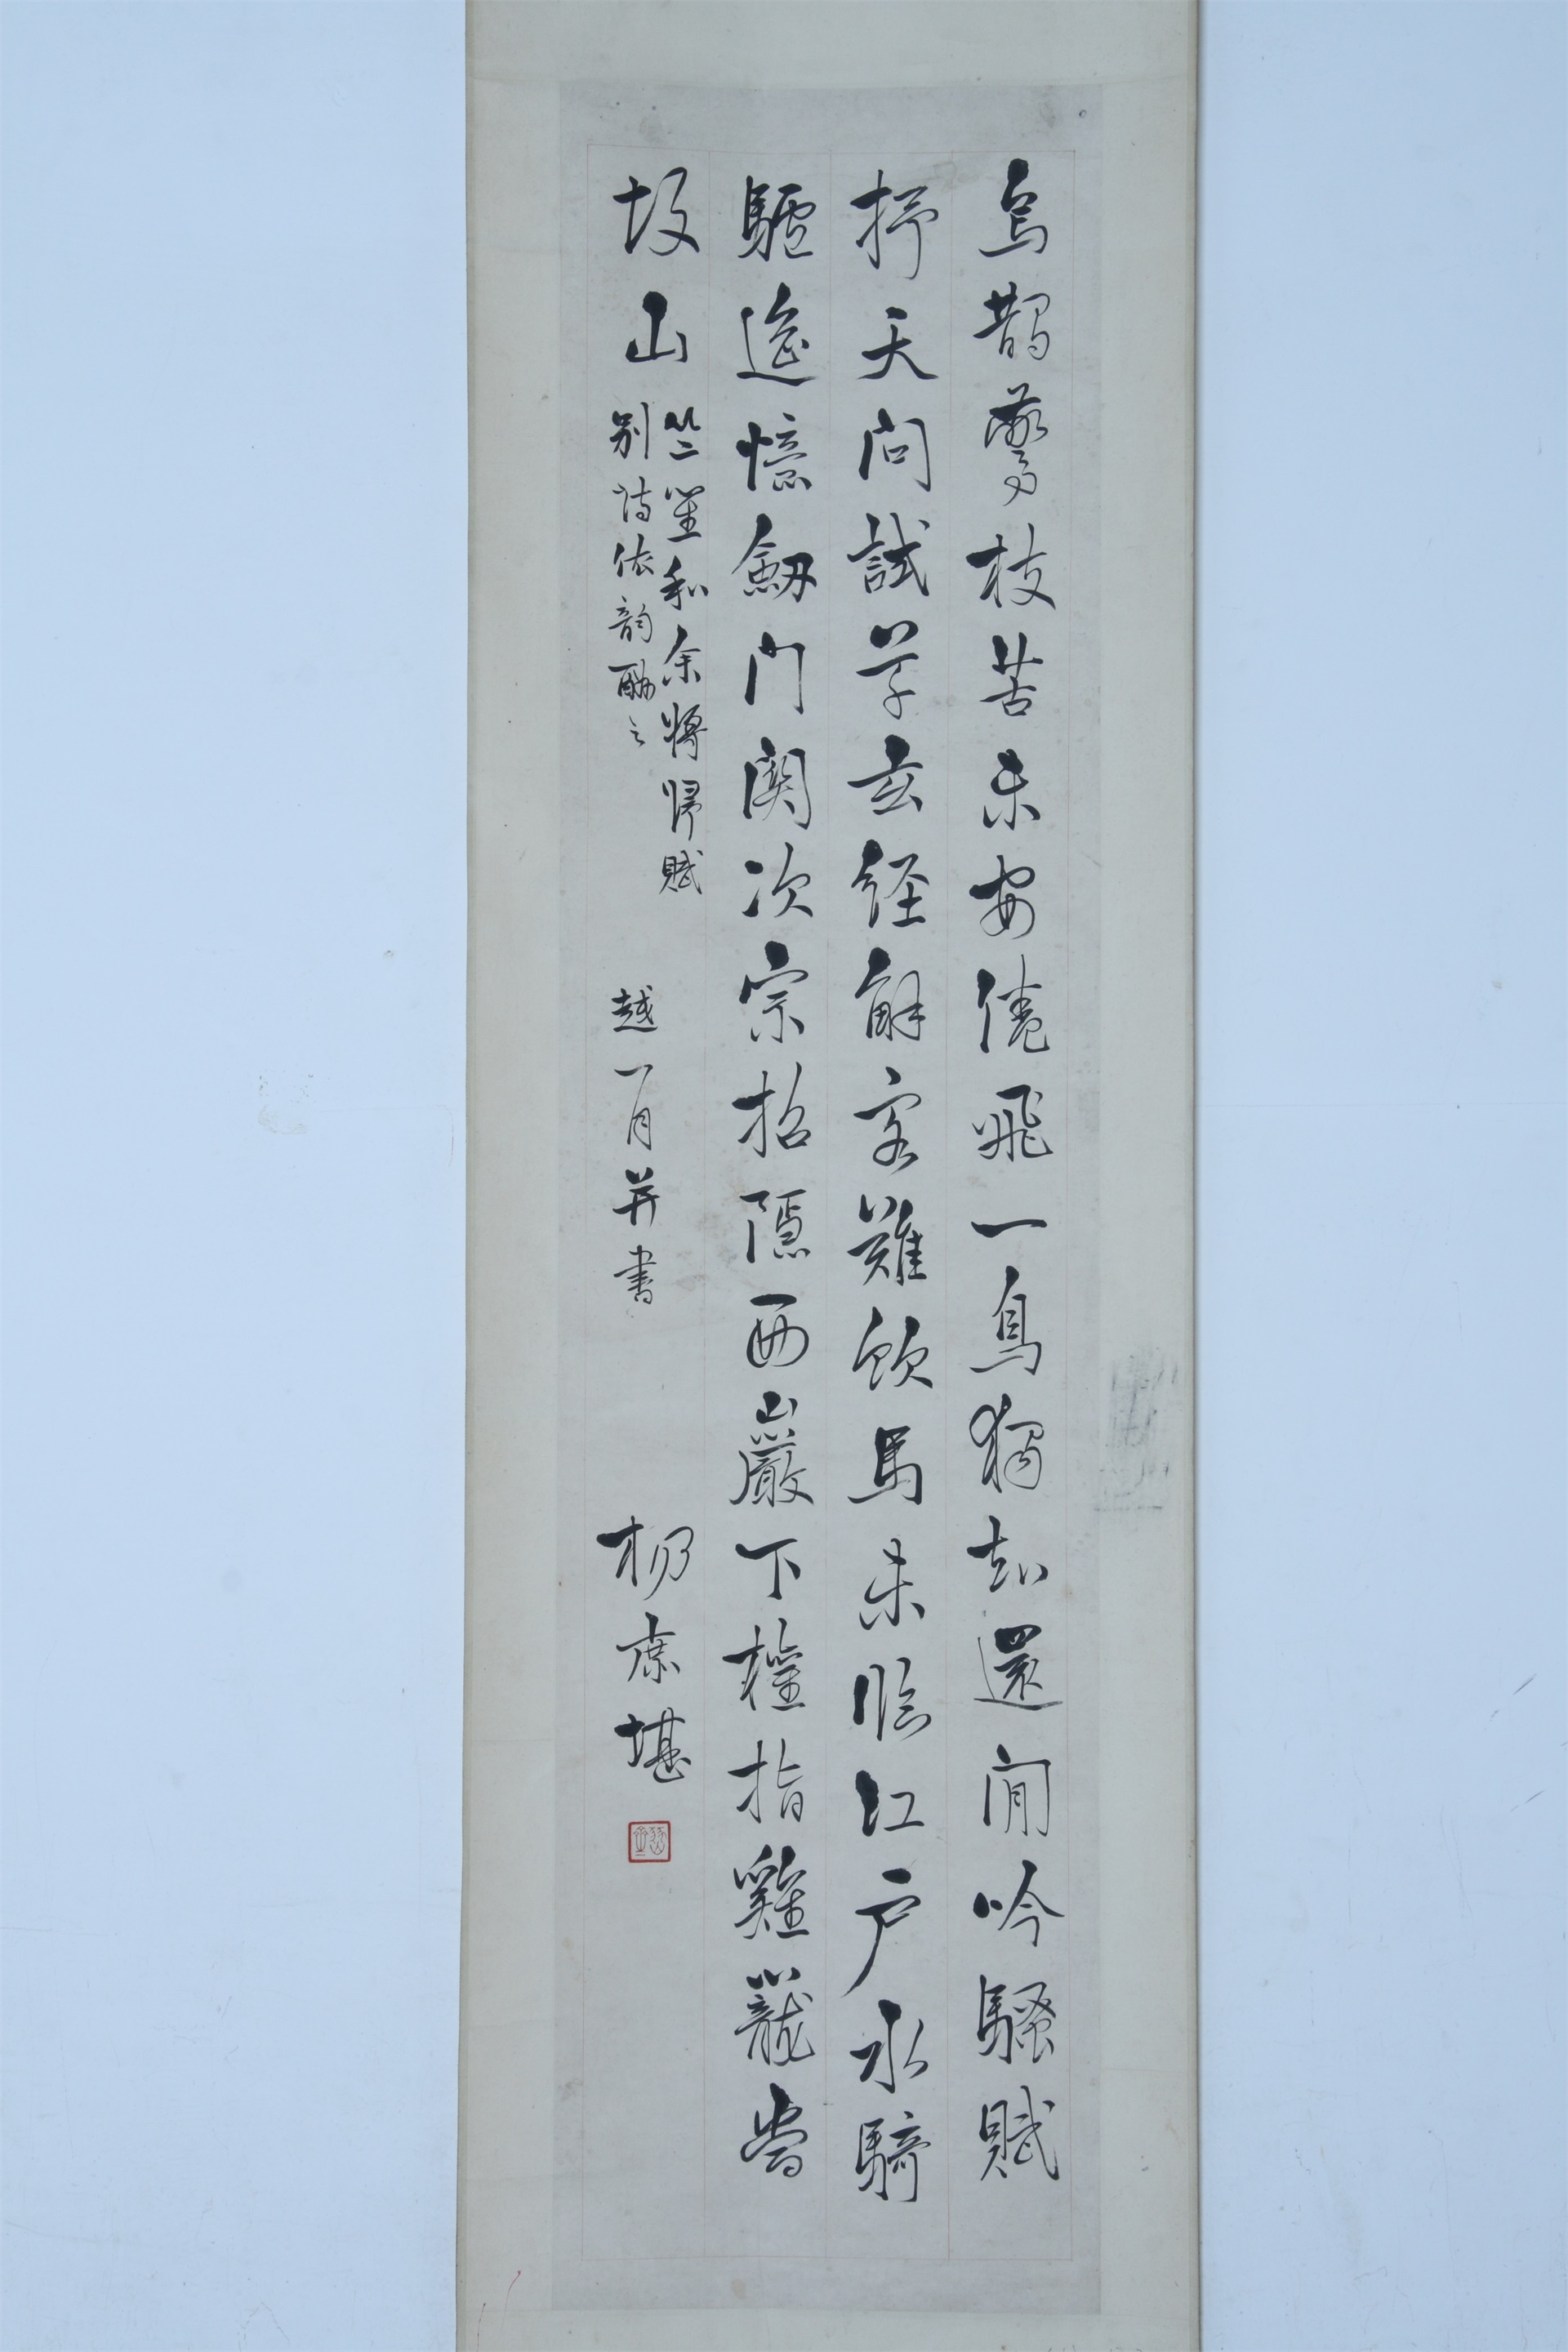 烏鵲驚枝苦未安倦飛一鳥獨知還閒吟騷賦
抒天問試草玄經解客難飲馬未臨江戶水騎
驢遙憶劒門關次宗招隱西巖下權指雞籠當
故山
竺笙和余將歸賦
別詩依韵酬之
越一月并書
楊庶堪